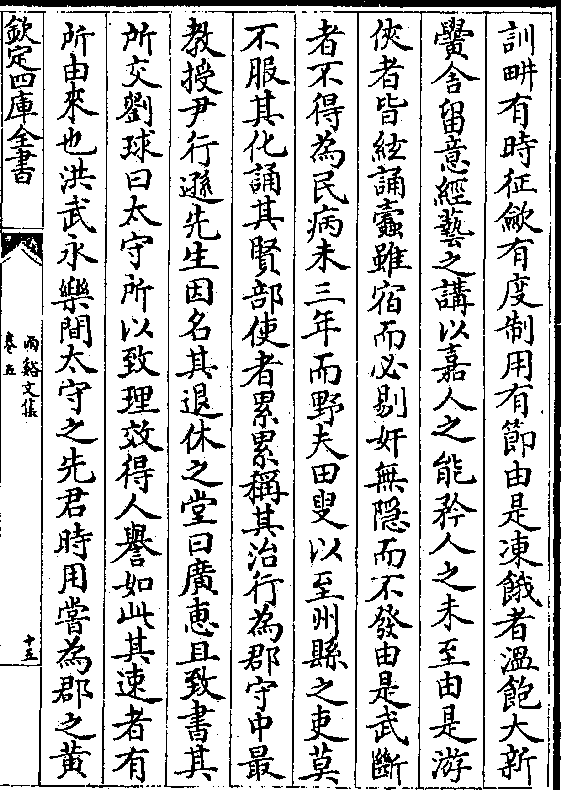 訓畊有時征歛有度制用有節由是凍餓者溫飽大新
黌舍留意經藝之講以嘉人之能矜人之未至由是游
俠者皆絃誦蠹雖宿而必剔奸無隠而不發由是武斷
者不得為民病未三年而野夫田叟以至州縣之吏莫
不服其化誦其賢部使者累累稱其治行為郡守中最
教授尹行遜先生因名其退休之堂曰廣恵且致書其
所交劉球曰太守所以致理效得人譽如此其速者有
所由來也洪武永樂間太守之先君時用嘗為郡之黄
欽定四庫全書
兩谿文集
卷五
十五